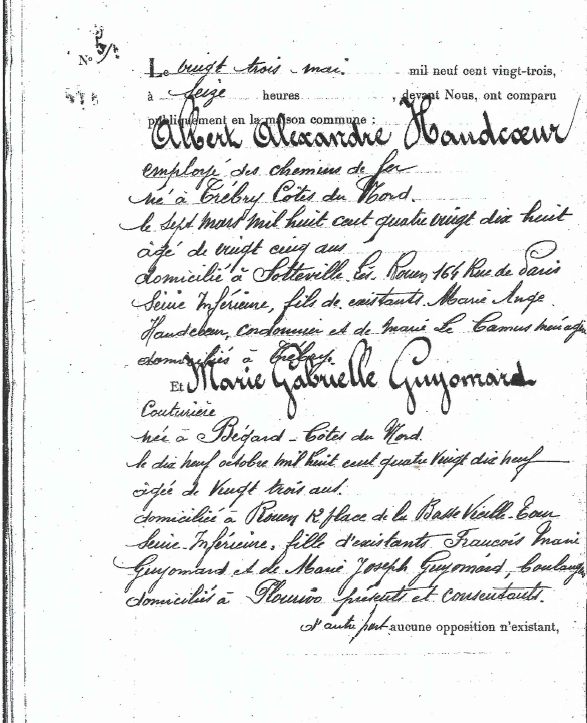 N° 5
Le vingt trois mai mil neuf cent vingt-trois,
à seize heures devant Nous, ont comparu
publiquement en la maison commune :
Albert Alexandre Haudcœur
employé des chemins de fer
né à Trébry Côtes du Nord.
le sept mars mil huit cent quatre vingt dix huit
âgé de vingt cinq ans
domicilié à Sotteville-lès-Rouen 164 Rue de Paris
Seine Inférieure, fils de existants Marie Ange
Haudcœur, cordonnier et de Marie Le Camus ménagère
domiciliés à Trébry.
Et Marie Gabrielle Guyomard
Couturière
née à Bégard - Côtes du Nord.
le dix neuf octobre mil huit cent quatre vingt dix neuf
âgée de vingt trois ans.
domiciliée à Rouen 12 place de la Basse Vieille-Tour
Seine-Inférieure, fille d'existants François Marie
Guyomard et de Marie Joseph Guyomard,
domiciliés à présents et consentants.
d'autre part aucune opposition n'existant,